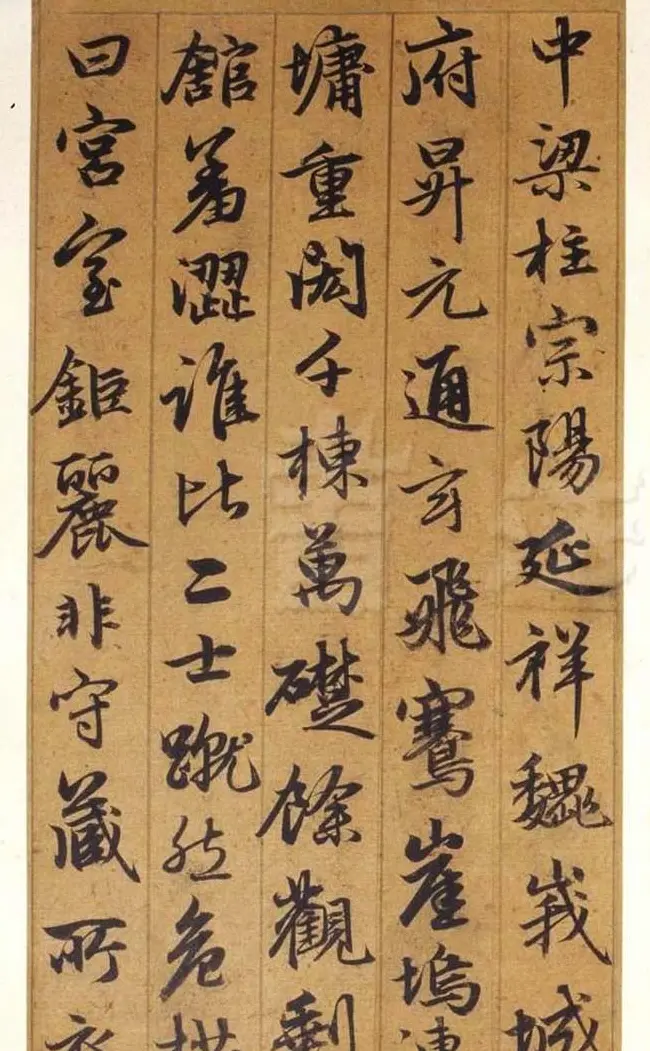 中梁柱宗陽延祥魏峩城
府昇元通玄飛騫崖塢連
墉重閎千棟萬礎餘觀剩
舘羞澀誰比二士蹴然危拱
曰宮室鉅麗非守藏所